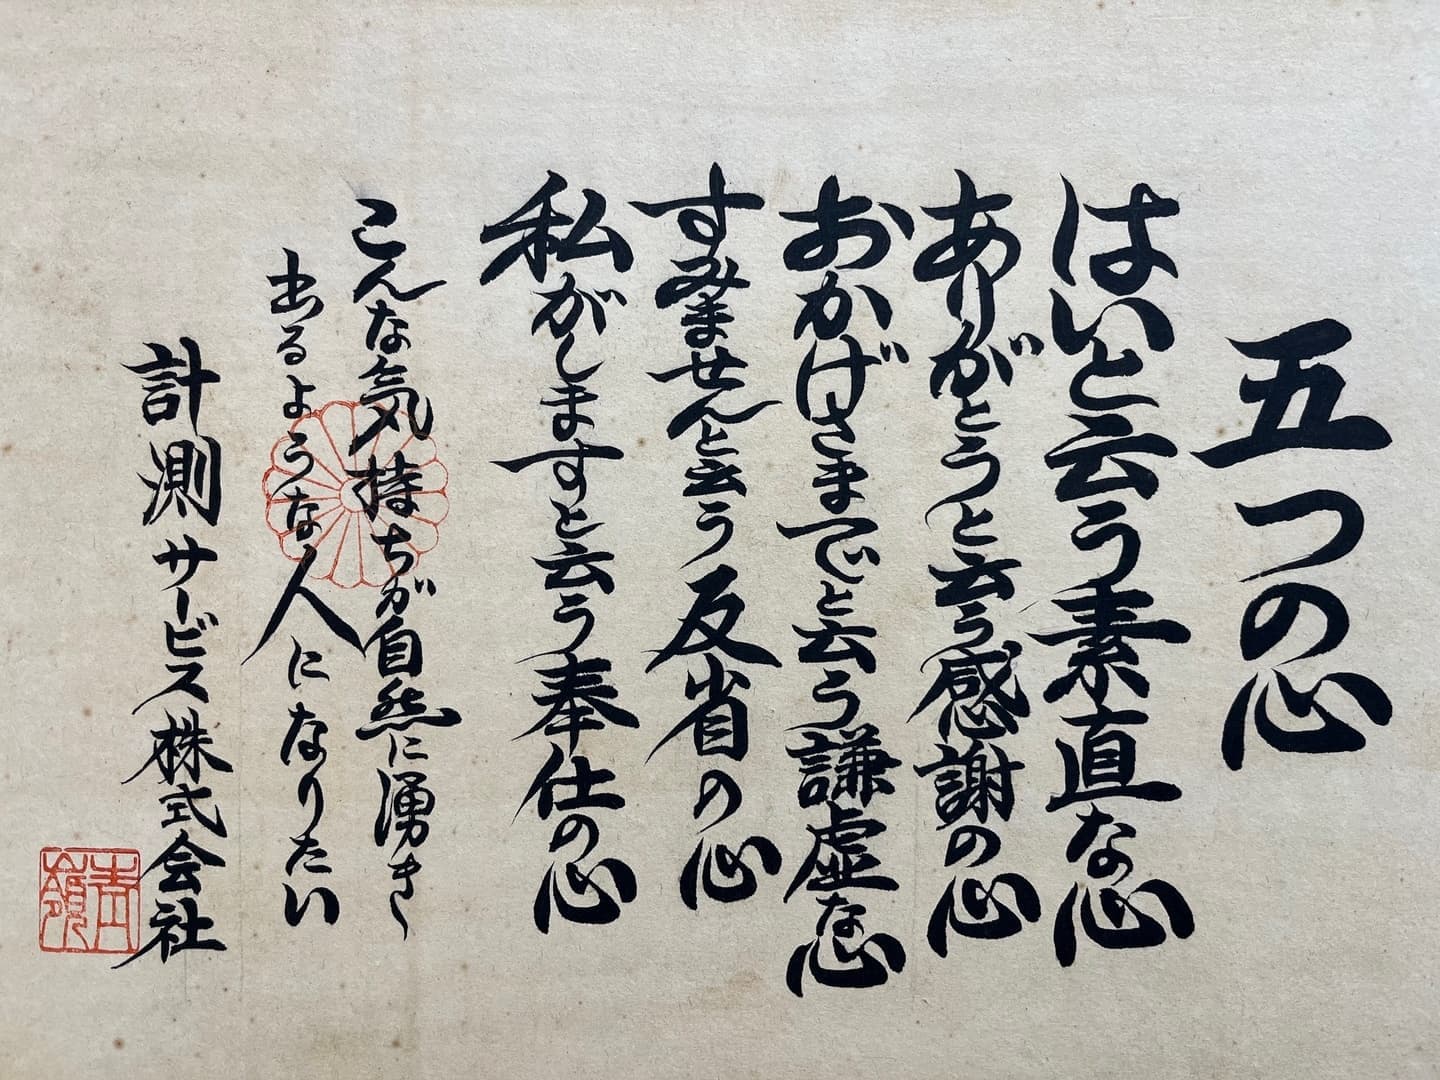 五つの心
はいと云う素直な心
ありがとうと云う感謝の心
おかげさまでと云う謙虚な心
すみませんと云う反省の心
私がしますと云う奉仕の心
こんな気持ちが自然に湧き
出るような人になりたい
計測サービス株式会社